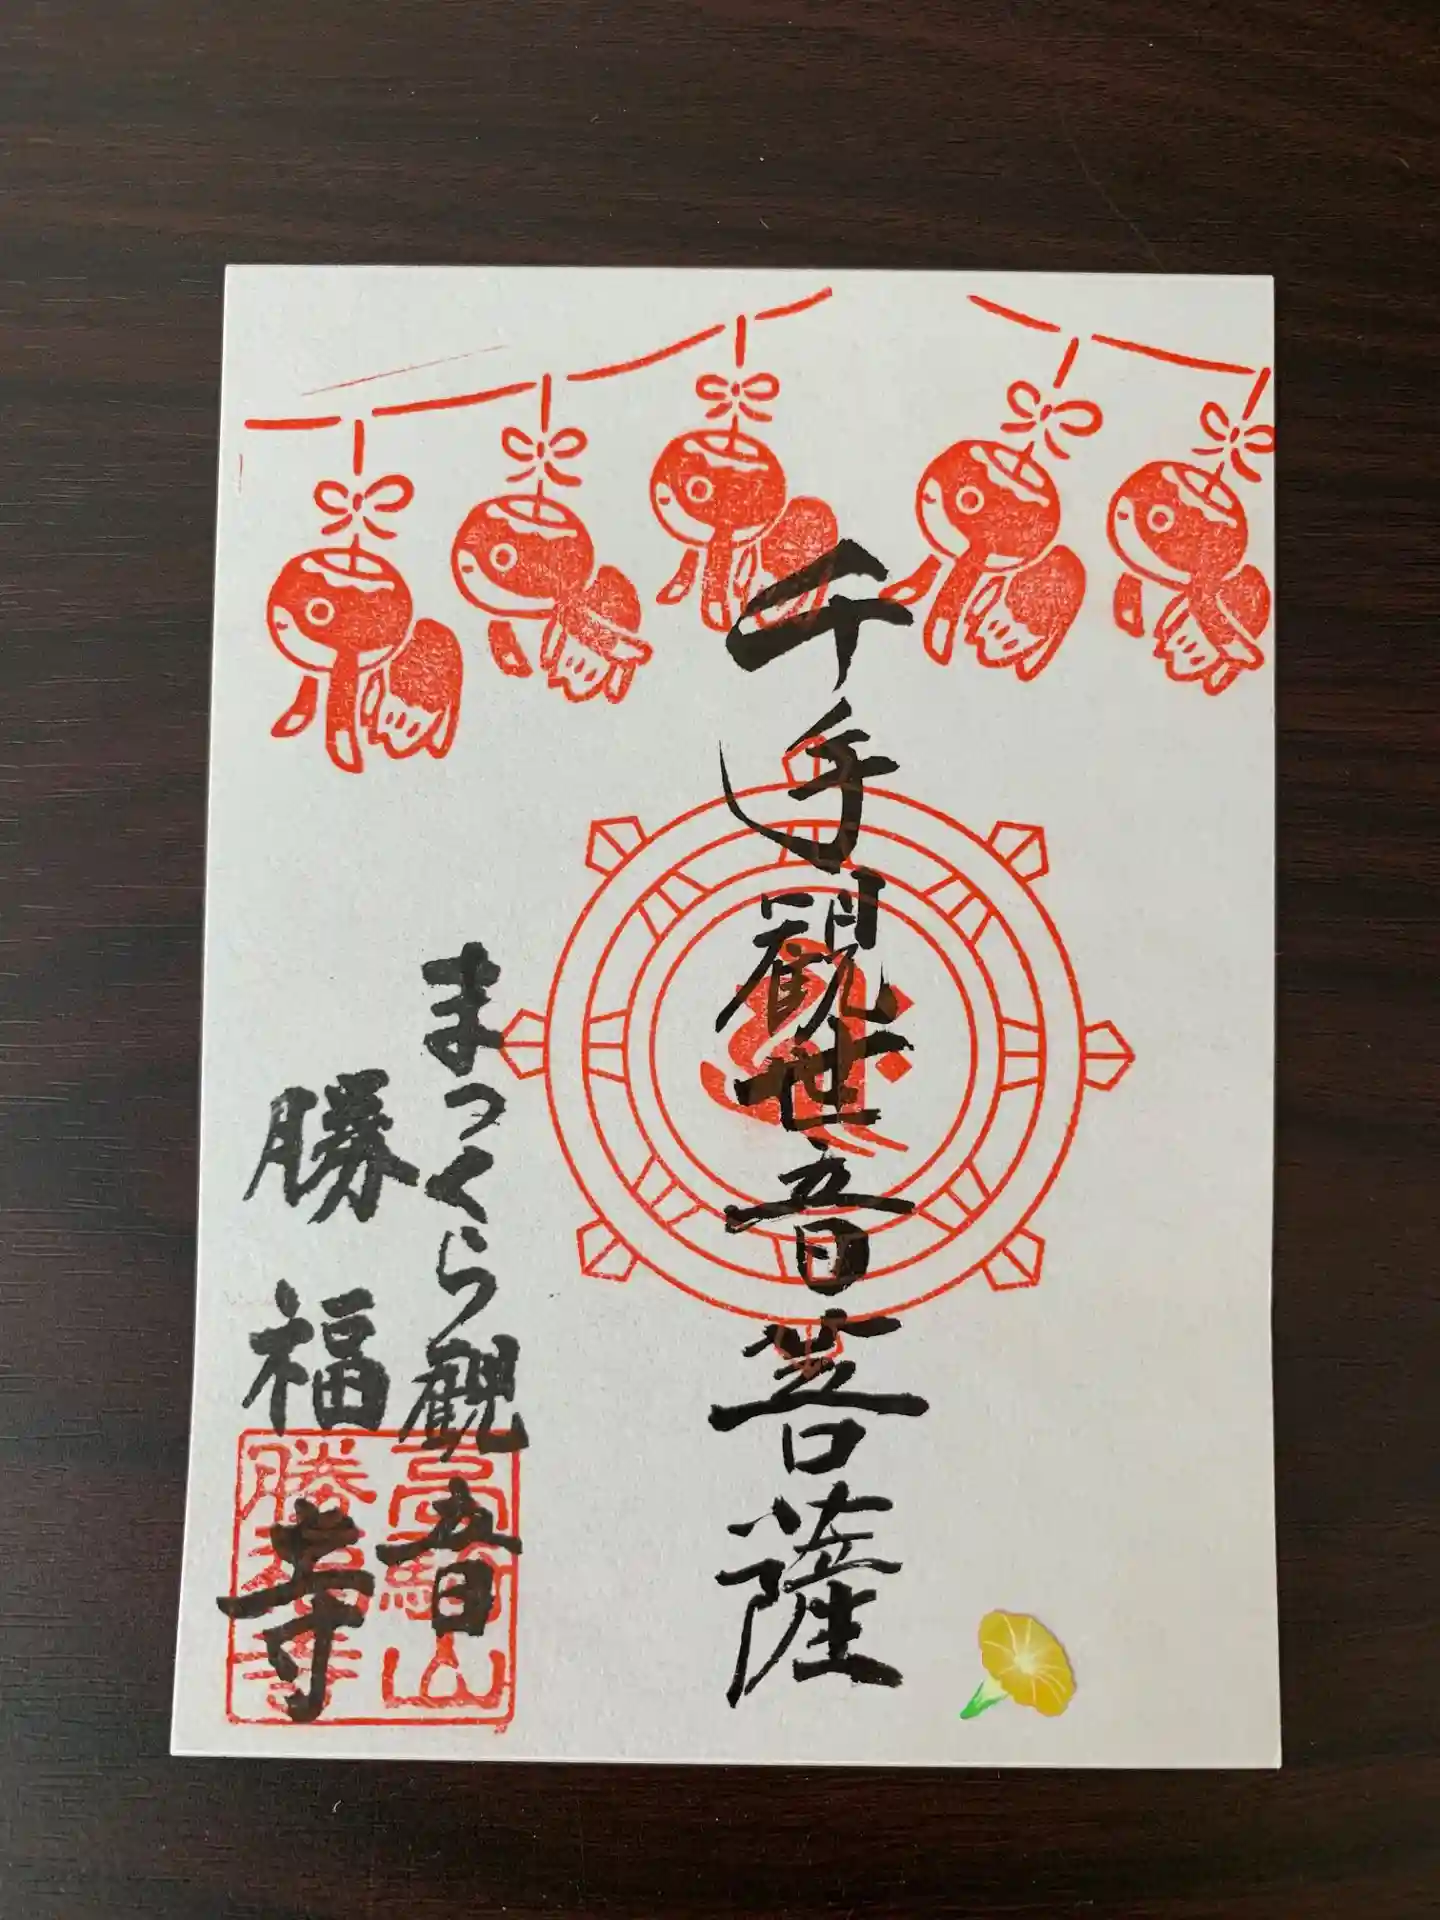 千手観世音菩薩
まっくら観音
勝福寺
高騎山
勝福寺